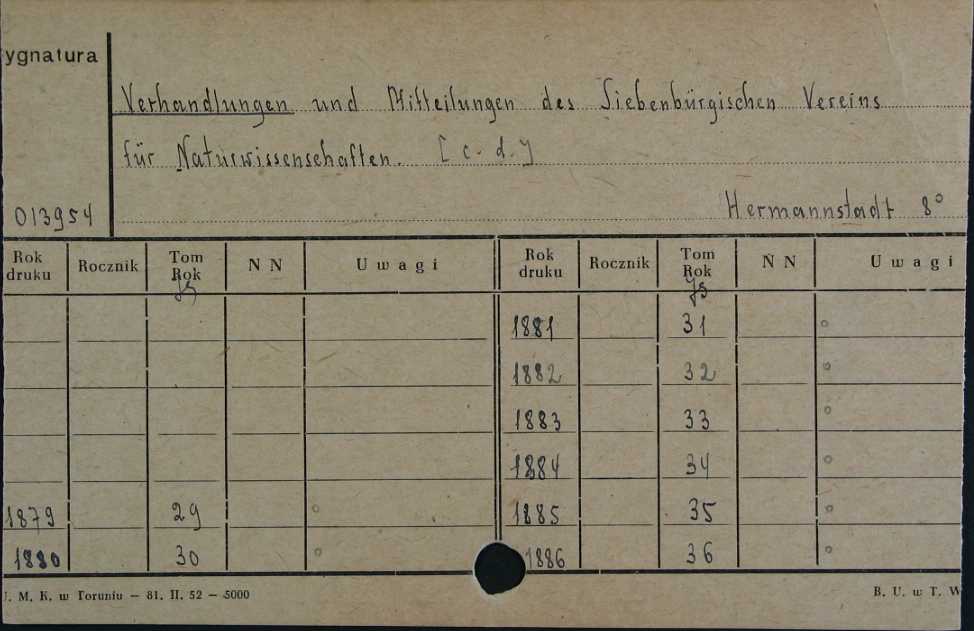 ygnatura
Verhandlungen und Mitteilungen des Siebenbürgischen Vereins
für Naturwissenschaften. [c. d.]
013954
Hermannstadt 8°
Rok druku Rocznik Tom Rok NN Uwagi Rok druku Rocznik Tom Rok NN Uwagi
Jg Jg
1881 31 °
1882 32 °
1883 33 °
1884 34 °
1879 29 ° 1885 35 °
1880 30 ° 1886 36 °
. M. K. w Toruniu — 81. II. 52 — 5000 B. U. w T. W